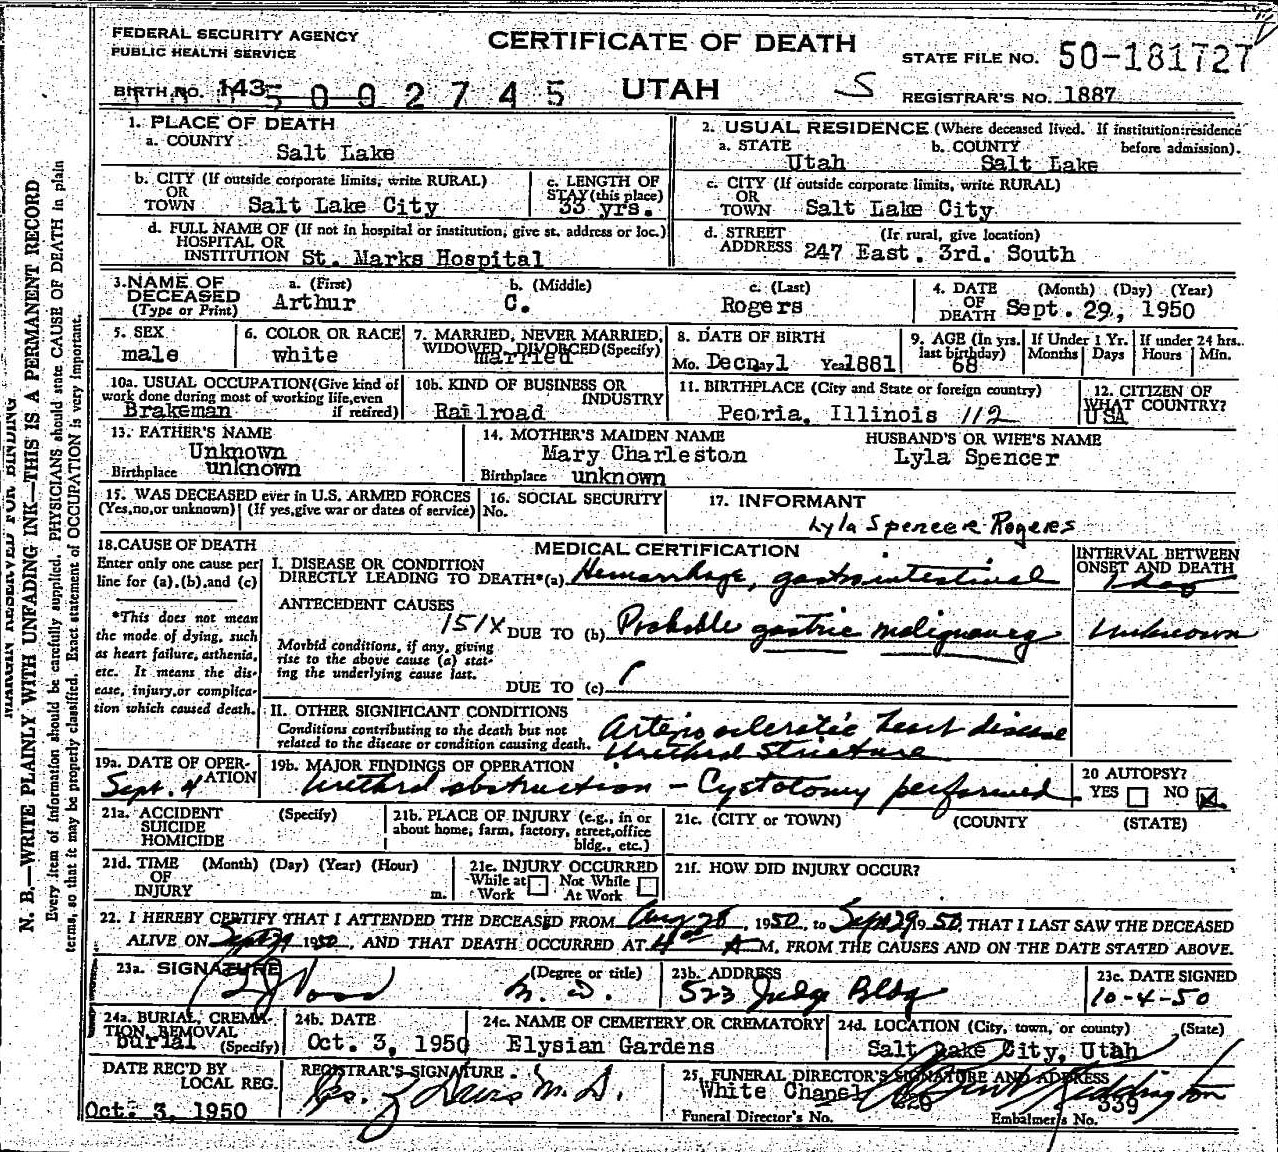 FEDERAL SECURITY AGENCY
PUBLIC HEALTH SERVICE
CERTIFICATE OF DEATH
UTAH
STATE FILE NO. 50-181727
BIRTH NO. 143 5 0 0 2 7 4 5
S
REGISTRAR'S NO. 1887
MARGIN RESERVED FOR BINDING
N. B.—WRITE PLAINLY WITH UNFADING INK—THIS IS A PERMANENT RECORD
Every item of information should be carefully supplied. PHYSICIANS should state CAUSE OF DEATH in plain
terms, so that it may be properly classified. Exact statement of OCCUPATION is very important.
1. PLACE OF DEATH
a. COUNTY Salt Lake
2. USUAL RESIDENCE (Where deceased lived. If institution: residence before admission).
a. STATE Utah b. COUNTY Salt Lake
b. CITY (If outside corporate limits, write RURAL) OR TOWN Salt Lake City
c. LENGTH OF STAY (this place) 33 yrs.
c. CITY (If outside corporate limits, write RURAL) OR TOWN Salt Lake City
d. FULL NAME OF (If not in hospital or institution, give st. address or loc.) HOSPITAL OR INSTITUTION St. Marks Hospital
d. STREET ADDRESS (If rural, give location) 247 East. 3rd. South
3. NAME OF DECEASED (Type or Print)
a. (First) Arthur
b. (Middle) C.
c. (Last) Rogers
4. DATE OF DEATH (Month) (Day) (Year) Sept. 29, 1950
5. SEX male
6. COLOR OR RACE white
7. MARRIED, NEVER MARRIED, WIDOWED, DIVORCED (Specify) married
8. DATE OF BIRTH Mo. Dec Day 1 Yr. 1881
9. AGE (In yrs. last birthday) 68
If Under 1 Yr. Months Days
If under 24 hrs. Hours Min.
10a. USUAL OCCUPATION (Give kind of work done during most of working life, even if retired) Brakeman
10b. KIND OF BUSINESS OR INDUSTRY Railroad
11. BIRTHPLACE (City and State or foreign country) Peoria, Illinois 112
12. CITIZEN OF WHAT COUNTRY? USA
13. FATHER'S NAME Unknown
Birthplace unknown
14. MOTHER'S MAIDEN NAME Mary Charleston
Birthplace unknown
HUSBAND'S OR WIFE'S NAME Lyla Spencer
15. WAS DECEASED ever in U.S. ARMED FORCES
(Yes, no, or unknown) (If yes, give war or dates of service)
16. SOCIAL SECURITY No.
17. INFORMANT Lyla Spencer Rogers
18. CAUSE OF DEATH
Enter only one cause per line for (a), (b), and (c)
*This does not mean the mode of dying, such as heart failure, asthenia, etc. It means the disease, injury, or complication which caused death.
MEDICAL CERTIFICATION
INTERVAL BETWEEN ONSET AND DEATH
I. DISEASE OR CONDITION DIRECTLY LEADING TO DEATH* (a) Hemorrhage, gastrointestinal
1 day
ANTECEDENT CAUSES
151X DUE TO (b) Probable gastric malignancy
Unknown
Morbid conditions, if any, giving rise to the above cause (a) stating the underlying cause last.
DUE TO (c)
II. OTHER SIGNIFICANT CONDITIONS
Conditions contributing to the death but not related to the disease or condition causing death.
Arteriosclerotic heart disease
Urethral Stricture
19a. DATE OF OPERATION Sept. 4
19b. MAJOR FINDINGS OF OPERATION
Urethral obstruction — Cystotomy performed
20 AUTOPSY? YES NO X
21a. ACCIDENT SUICIDE HOMICIDE (Specify)
21b. PLACE OF INJURY (e.g., in or about home, farm, factory, street, office bldg., etc.)
21c. (CITY or TOWN) (COUNTY) (STATE)
21d. TIME OF INJURY (Month) (Day) (Year) (Hour) m.
21e. INJURY OCCURRED While at Work Not While At Work
21f. HOW DID INJURY OCCUR?
22. I HEREBY CERTIFY THAT I ATTENDED THE DECEASED FROM Aug 28, 1950, to Sept 29, 1950, THAT I LAST SAW THE DECEASED
ALIVE ON Sept 29 1950, AND THAT DEATH OCCURRED AT A M, FROM THE CAUSES AND ON THE DATE STATED ABOVE.
23a. SIGNATURE
(Degree or title) M. D.
23b. ADDRESS 523 Judge Bldg
23c. DATE SIGNED 10-4-50
24a. BURIAL, CREMATION, REMOVAL (Specify) burial
24b. DATE Oct. 3, 1950
24c. NAME OF CEMETERY OR CREMATORY Elysian Gardens
24d. LOCATION (City, town, or county) (State) Salt Lake City, Utah
DATE REC'D BY LOCAL REG. Oct. 3, 1950
REGISTRAR'S SIGNATURE
M. D.
25. FUNERAL DIRECTOR'S SIGNATURE AND ADDRESS
White Chapel
Funeral Director's No. 229
Embalmer's No. 339